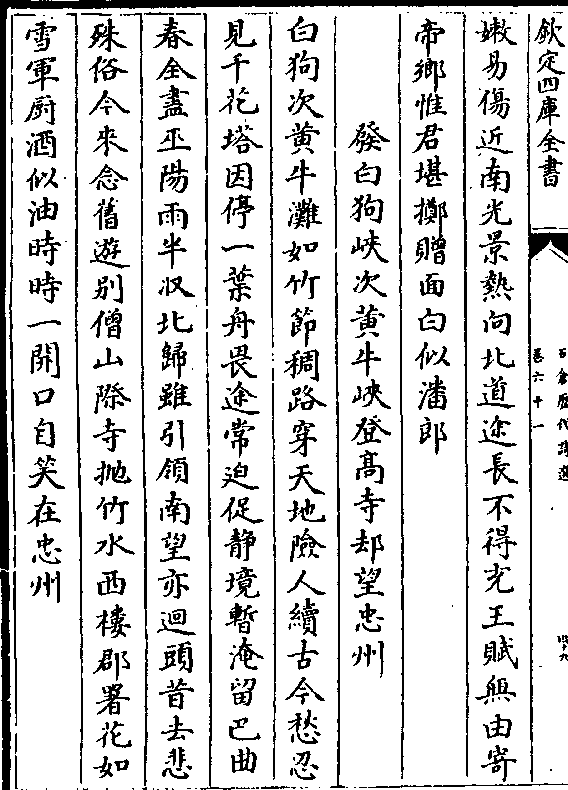 欽定四庫全書
石倉歷代詩選
卷六十一
四十九
嫩易傷近南光景熱向北道途長不得充王賦無由寄
帝鄉惟君堪擲贈面白似潘郎
發白狗峽次黃牛峽登高寺却望忠州
白狗次黃牛灘如竹節稠路穿天地險人續古今愁忽
見千花塔因停一葉舟畏途常迫促静境暫淹留巴曲
春全盡巫陽雨半收北歸雖引領南望亦迴頭昔去悲
殊俗今來念舊遊别僧山際寺抛竹水西樓郡署花如
雪軍厨酒似油時時一開口自笑在忠州